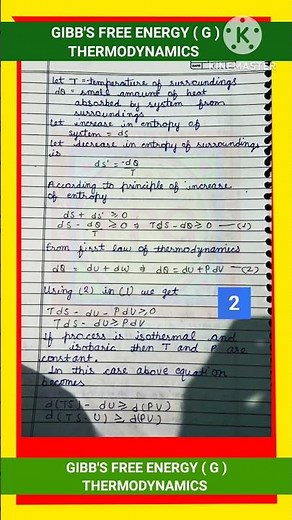 GIBB'S FREE ENERGY ( G )
THERMODYNAMICS
K
KINEMASTER
Let T = temperature of surroundings
dQ = small amount of heat
absorbed by system from
surroundings
Let increase in entropy of
system = dS
Let decrease in entropy of surroundings
is
dS' = -dQ/T
According to principle of increase
of entropy
dS + dS' ≥ 0
dS - dQ/T ≥ 0 ⇒ TdS - dQ ≥ 0 —(1)
From first law of thermodynamics
dQ = dU + dW ⇒ dQ = dU + PdV —(2)
Using (2) in (1) we get
TdS - dU - PdV ≥ 0
TdS - dU ≥ PdV
2
If process is isothermal and
isobaric then T and P are
constant.
In this case above equation
becomes
d(TS) - dU ≥ d(PV)
d(TS - U) ≥ d(PV)
GIBB'S FREE ENERGY ( G )
THERMODYNAMICS